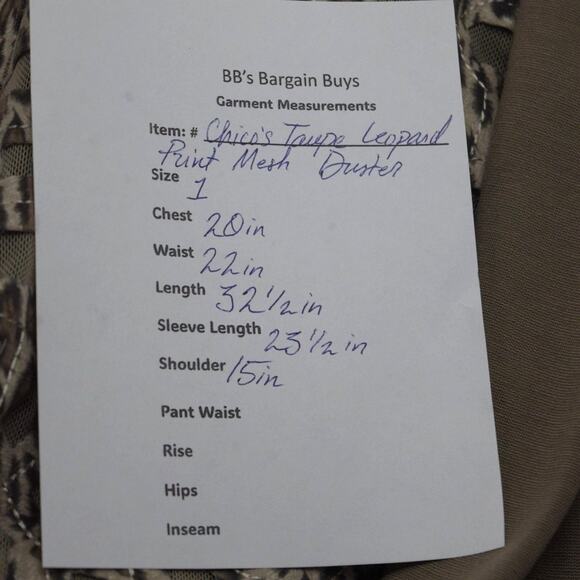 BB's Bargain Buys
Garment Measurements
Item: # Chico's Taupe Leopard
Print Mesh Duster
Size 1
Chest 20in
Waist 22in
Length 32 1/2 in
Sleeve Length 23 1/2 in
Shoulder 15in
Pant Waist
Rise
Hips
Inseam